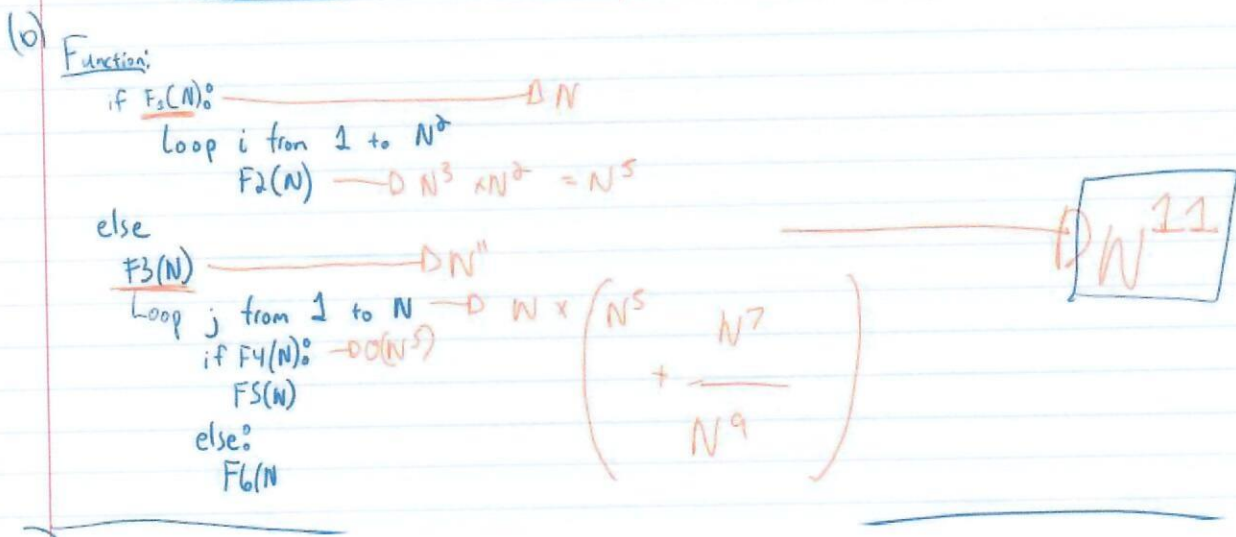 (b)
Function:
if F1(N): → N
Loop i from 1 to N²
F2(N) → N³ × N² = N⁵
else
F3(N) → N¹¹
Loop j from 1 to N → N × ( N⁵ + N⁷ / N⁹ )
if F4(N): → O(N⁵)
F5(N)
else:
F6(N
→ N¹¹